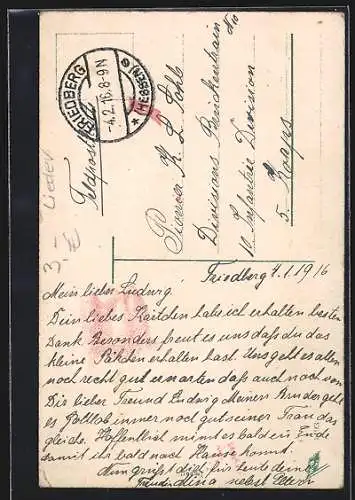 FRIEDBERG
(HESSEN)
-4.2.16.8-9N
Feldpost
Lieder
3,- €
Pionier K. L.
Divisions Brückentrain
No
10 Infantrie Division
5. Korps
Friedberg 4.1.1916
Mein lieber Ludwig!
Dein liebes Kärtchen hab ich erhalten besten
Dank Besonders freut es uns daß du das
kleine erhalten hast. Uns geht es allen
noch recht gut erwarten daß auch noch von
Dir lieber Freund Ludwig Meinem Bruder geht
es Gottlob immer noch gut seiner Frau das
gleiche Hoffentlich nimt es bald ein Ende
damit ihr bald nach Hause komt.
grüßt dich für heute deine
nebst Eltern